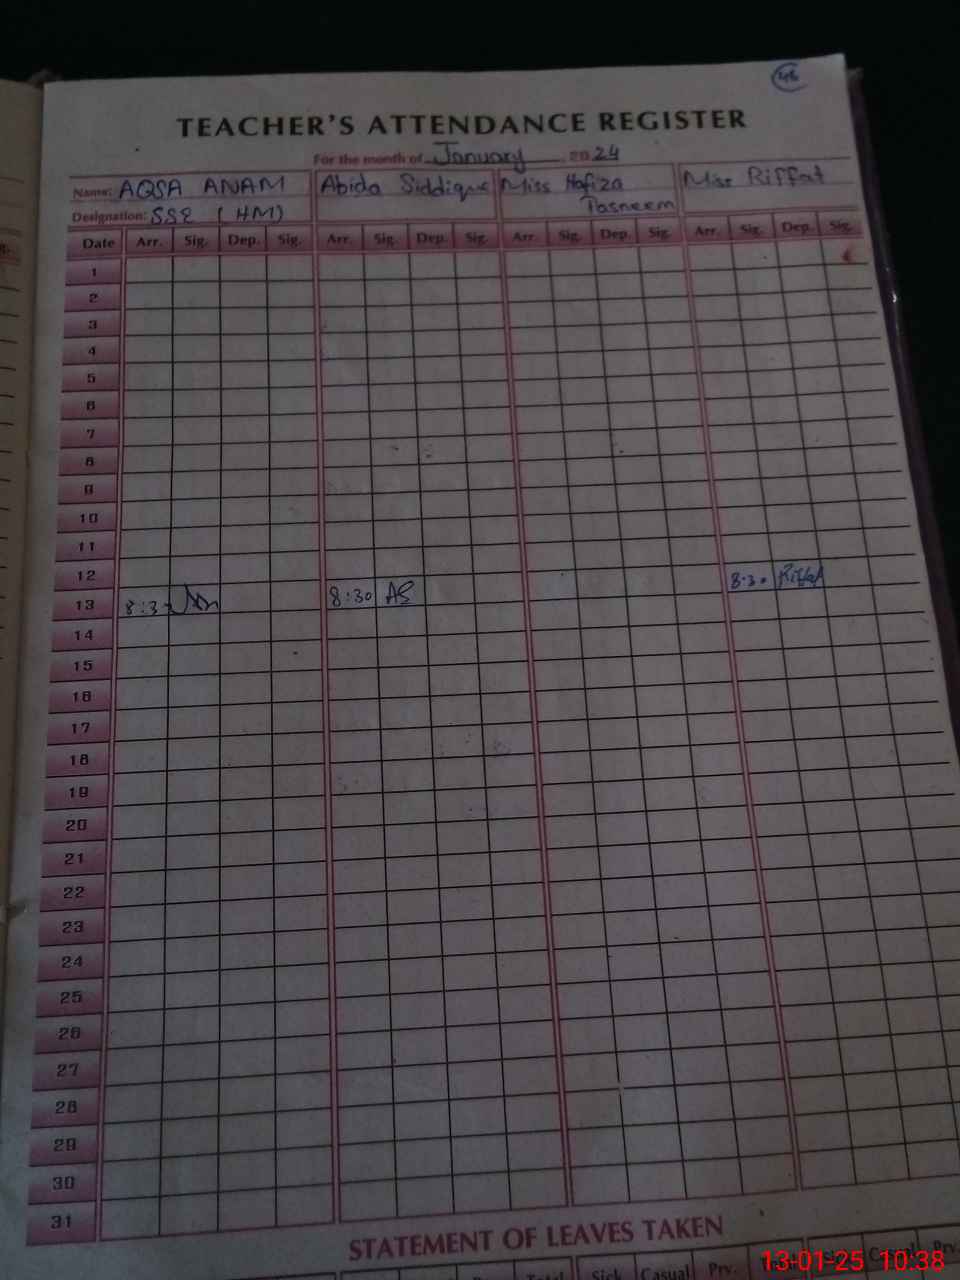 46
TEACHER'S ATTENDANCE REGISTER
For the month of January 2024
Name: AQSA ANAM Abida Siddique Miss Hafiza Tasneem Miss Riffat
Designation: SSE (HM)
Date Arr. Sig. Dep. Sig. Arr. Sig. Dep. Sig. Arr. Sig. Dep. Sig. Arr. Sig. Dep. Sig.
1
2
3
4
5
6
7
8
9
10
11
12
13 8:3 8:30 AS 8:30 Riffat
14
15
16
17
18
19
20
21
22
23
24
25
26
27
28
29
30
31
STATEMENT OF LEAVES TAKEN
Total Sick Casual Prv. Sick Casual Prv.
13-01-25 10:38